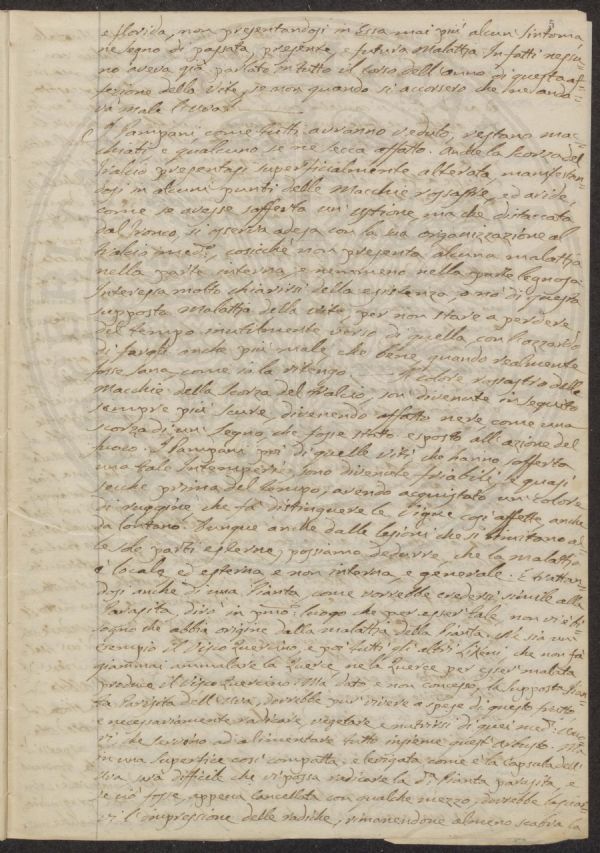 5
e florida, non presentandosi in essa mai più alcun sintoma,
ne segno di passata, presente, e futura Malattia. Infatti nessu-
no aveva già parlato in tutto il corso dell'anno di questa af-
fezione della Vite, se non quando si accorsero che ne anda-
va male l'uva.
I Pampani come tutti avranno veduto, restano mac-
chiati, e qualcuno se ne secca affatto. Anche la scorza del
tralcio presentasi superficialmente alterata, manifestan-
dosi in alcuni punti delle Macchie rossastre, ed aride,
come se avesse sofferto un'ustione, ma che distaccata
dal tronco, si osserva adesa con la sua organizzazione al
tralcio med.o, cosicchè non presenta alcuna malattia
nella parte interna, e nemmeno nella parte legnosa.
Interessa molto chiarirsi della esistenza, o nò di questa
supposta Malattia della vite, per non stare a perdere
del tempo inutilmente verso di quella, con l'azzardo
di fargli anche più male, che bene, quando realmente
fosse sana, come io la ritengo. Il colore rossastro delle
Macchie della Scorza del tralcio, son divenute in seguito
sempre più scure, divenendo affatto nere come una
scorza di un Legno, che fosse stato esposto all'azione del
fuoco. I Pampani poi di quelle viti che hanno sofferto
una tale Intemperie sono divenute friabili, e quasi
secche prima del tempo, avendo acquistato un colore
di ruggine che fà distinguere le Vigne così affette, anche
da lontano. Dunque anche dalle lesioni che si limitano al-
le sole parti esterne, possiamo dedurre, che la malattia
è locale ed esterna, e non interna, e generale. E trattan-
dosi anche di una Pianta, come vorrebbe credersi simile alla
Parassita, dirò in primo luogo che per esser tale, non vi è bi-
sogno che abbia origine dalla malattia della Pianta. Ne sia un
esempio il Visco Quercino, e poi tutti gli altri Licheni, che non fà
giammai ammalare la Querce, ne la Querce per esser malata
produce il Visco Quercino. Ma dato e non concesso, la supposta Pian-
ta Parasita dell'uva, dovrebbe pur vivere a spese di questo frutto
e necessariamente radicare, vegetare e nutrirsi di quei med.i
che servino ad alimentare tutto insieme quest'arbusto. Ma
in una superfice così compatta, e levigata come è la Capsula dell'
uva sarà difficile che vi possa radicare la d.a pianta parasita, e
se ciò fosse, appena cancellata con qualche mezzo, dovrebbe lasciar
vi l'impressione delle radiche, rimanendone almeno scabra la